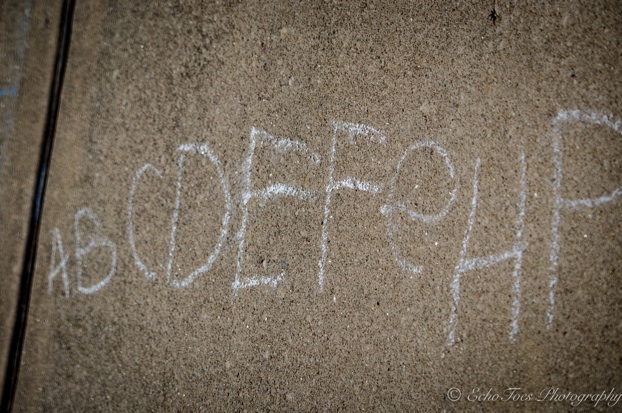 ABCDEFeHP
© EchoToes Photography